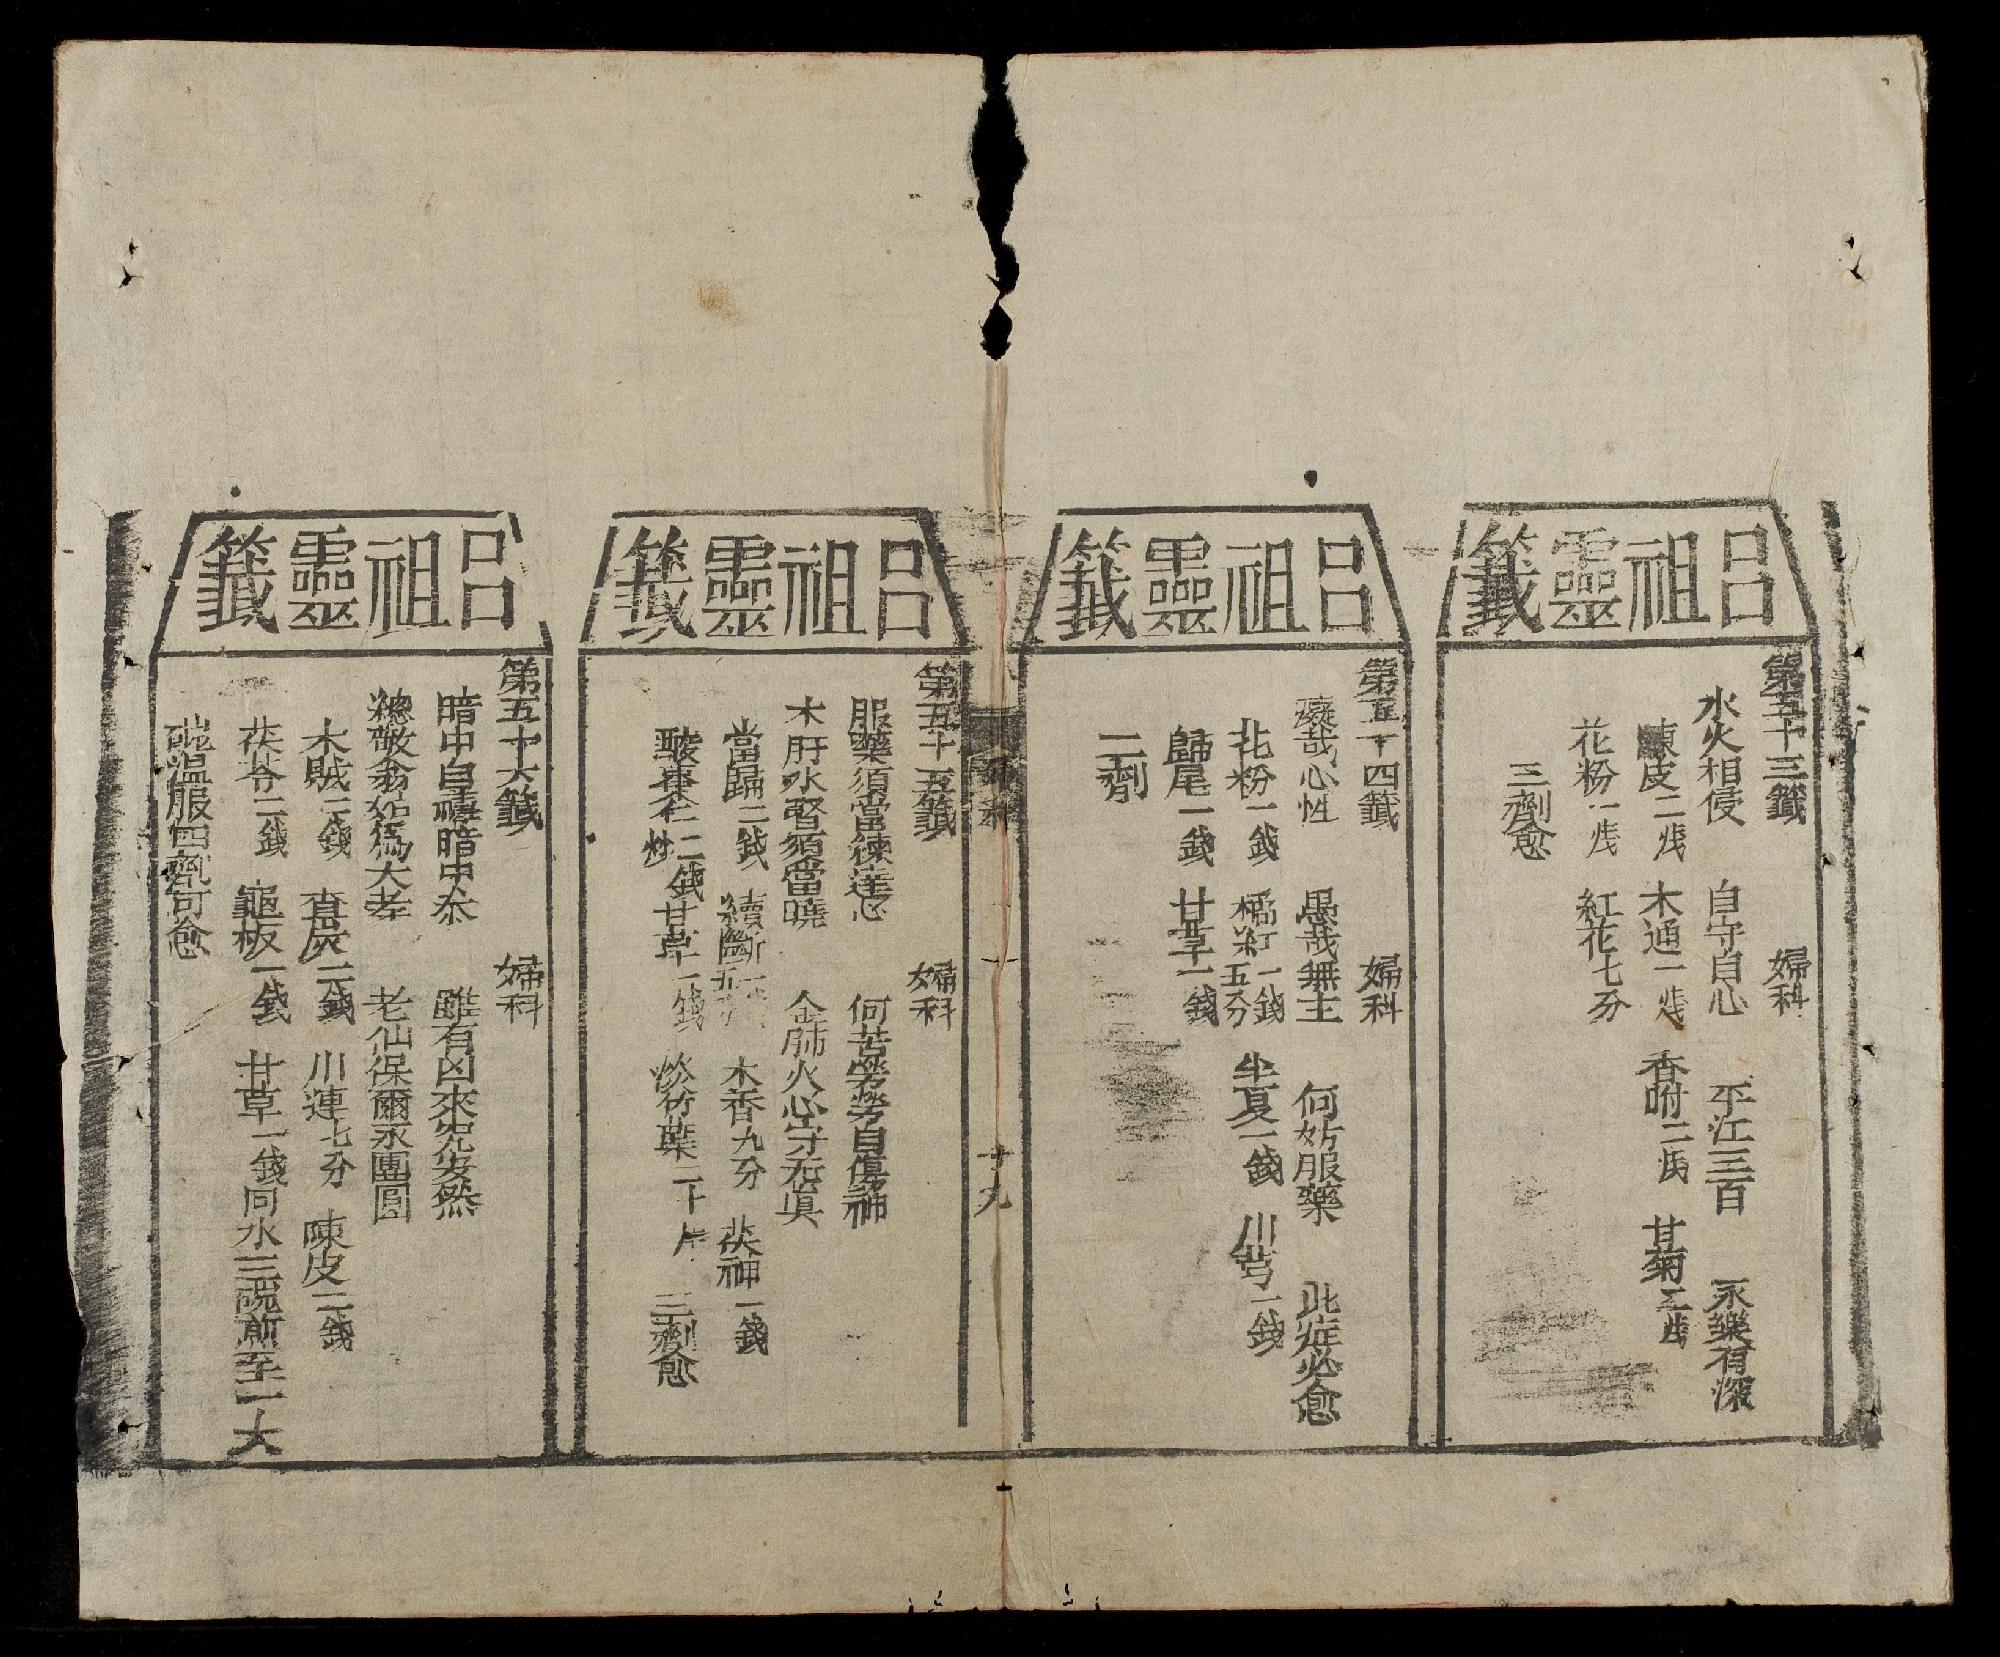 呂祖靈籤
第五十三籤 婦科
水火相侵 自守自心 平江三百 永樂有深
陳皮二錢 木通一錢 香附二錢 甘菊二錢
花粉一錢 紅花七分
三劑愈
呂祖靈籤
第五十四籤 婦科
癡哉心性 愚哉無主 何妨服藥 此症必愈
花粉一錢 橘紅一錢五分 半夏一錢 川芎一錢
歸尾一錢 甘草一錢
二劑
婦科
十九
呂祖靈籤
第五十五籤 婦科
服藥須當練達心 何苦勞勞自傷神
木肝水腎須當曉 金肺火心守吞真
當歸二錢 續斷一錢五分 木香九分 茯神一錢
酸棗仁二錢炒 甘草一錢 淡竹葉二十片 三劑愈
呂祖靈籤
第五十六籤 婦科
暗中自禱暗中泰 雖有凶來究安然
總敬翁姑爲大孝 老仙保爾永團圓
木賊二錢 查炭二錢 川連七分 陳皮二錢
茯苓二錢 龜板一錢 甘草一錢 同水三碗煎至一大
碗溫服四劑可愈